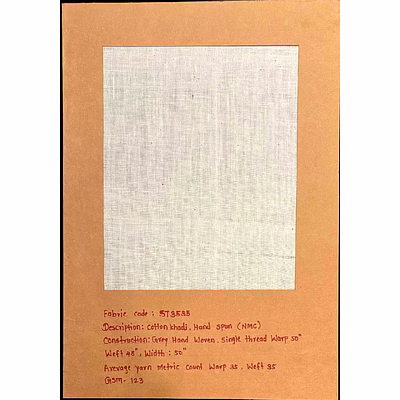 Fabric code : ST3535
Description: Cotton khadi. Hand spun (NMC)
Construction: Grey Hand Woven. Single thread Warp 50"
Weft 48", Width : 50"
Average yarn metric count Warp 35 . Weft 35
Gsm. 123